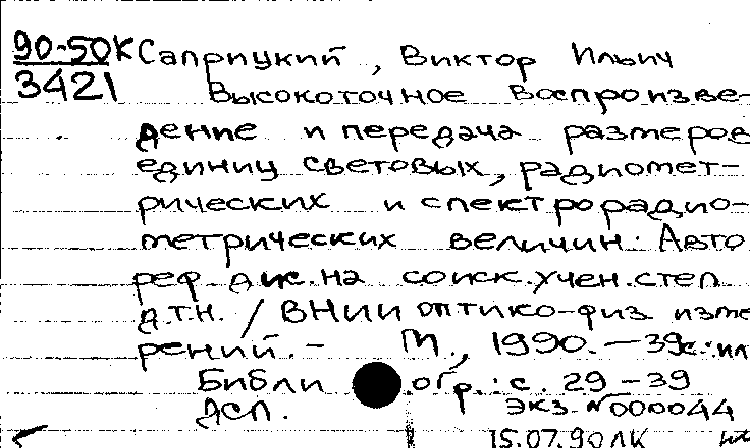 90-50К Саприцкий, Виктор Ильич
3421 Высокоточное воспроизве-
дение и передача размеров
единиц световых, радиомет-
рических и спектрорадио-
метрических величин: Авто
реф. дис. на соиск. учен. степ.
д.т.н. / ВНИИ оптико-физ. изме
рений. - М., 1990. - 39с.: ил
Библиогр.: с. 29-39
ДСП. Экз. №000044
15.07.90 ЛК